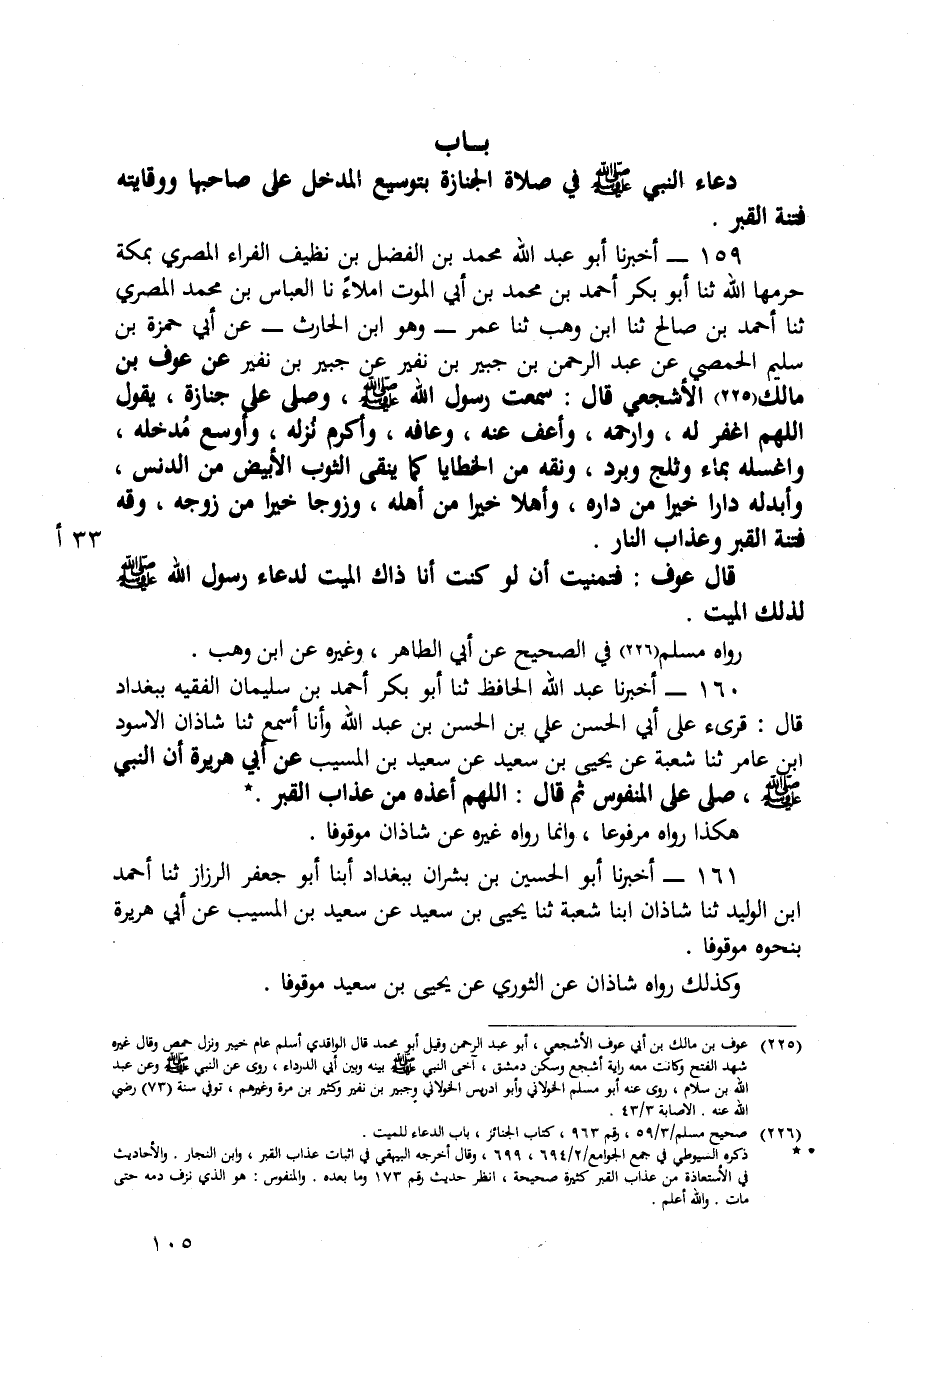 بـاب
دعاء النبي ﷺ في صلاة الجنازة بتوسيع المدخل على صاحبها ووقايته
فتنة القبر .
١٥٩ ــ أخبرنا أبو عبد الله محمد بن الفضل بن نظيف الفراء المصري بمكة
حرمها الله ثنا أبو بكر أحمد بن محمد بن أبي الموت املاءً نا العباس بن محمد المصري
ثنا أحمد بن صالح ثنا ابن وهب ثنا عمر ــ وهو ابن الحارث ــ عن أبي حمزة بن
سليم الحمصي عن عبد الرحمن بن جبير بن نفير عن جبير بن نفير عن عوف بن
مالك(٢٢٥) الأشجعي قال : سمعت رسول الله ﷺ ، وصلى على جنازة ، يقول
اللهم اغفر له ، وارحمه ، وأعف عنه ، وعافه ، وأكرم نُزله ، وأوسع مُدخله ،
واغسله بماء وثلج وبرد ، ونقه من الخطايا كما ينقى الثوب الأبيض من الدنس ،
وأبدله دارا خيرا من داره ، وأهلا خيرا من أهله ، وزوجا خيرا من زوجه ، وقه
فتنة القبر وعذاب النار . ٣٣ أ
قال عوف : فتمنيت أن لو كنت أنا ذاك الميت لدعاء رسول الله ﷺ
لذلك الميت .
رواه مسلم(٢٢٦) في الصحيح عن أبي الطاهر ، وغيره عن ابن وهب .
١٦٠ ــ أخبرنا عبد الله الحافظ ثنا أبو بكر أحمد بن سليمان الفقيه ببغداد
قال : قرىء على أبي الحسن علي بن الحسن بن عبد الله وأنا أسمع ثنا شاذان الاسود
ابن عامر ثنا شعبة عن يحيى بن سعيد عن سعيد بن المسيب عن أبي هريرة أن النبي
ﷺ ، صلى على المنفوس ثم قال : اللهم أعذه من عذاب القبر .*
هكذا رواه مرفوعا ، وانما رواه غيره عن شاذان موقوفا .
١٦١ ــ أخبرنا أبو الحسين بن بشران ببغداد أبنا أبو جعفر الرزاز ثنا أحمد
ابن الوليد ثنا شاذان ابنا شعبة ثنا يحيى بن سعيد عن سعيد بن المسيب عن أبي هريرة
بنحوه موقوفا .
وكذلك رواه شاذان عن الثوري عن يحيى بن سعيد موقوفا .
(٢٢٥) عوف بن مالك بن أبي عوف الأشجعي ، أبو عبد الرحمن وقيل أبو محمد قال الواقدي أسلم عام خيبر ونزل حمص وقال غيره
شهد الفتح وكانت معه راية أشجع وسكن دمشق ، آخى النبي ﷺ بينه وبين أبي الدرداء ، روى عن النبي ﷺ وعن عبد
الله بن سلام ، روى عنه أبو مسلم الخولاني وأبو ادريس الخولاني وجبير بن نفير وكثير بن مرة وغيرهم ، توفي سنة (٧٣) رضي
الله عنه . الاصابة ٤٣/٣ .
(٢٢٦) صحيح مسلم/٥٩/٣ ، رقم ٩٦٣ ، كتاب الجنائز ، باب الدعاء للميت .
* ذكره السيوطي في جمع الجوامع/٦٩٤/٢ ، ٦٩٩ ، وقال أخرجه البيهقي في اثبات عذاب القبر ، وابن النجار . والأحاديث
في الأستعاذة من عذاب القبر كثيرة صحيحة ، انظر حديث رقم ١٧٣ وما بعده . والمنفوس : هو الذي نزف دمه حتى
مات . والله أعلم .
١٠٥